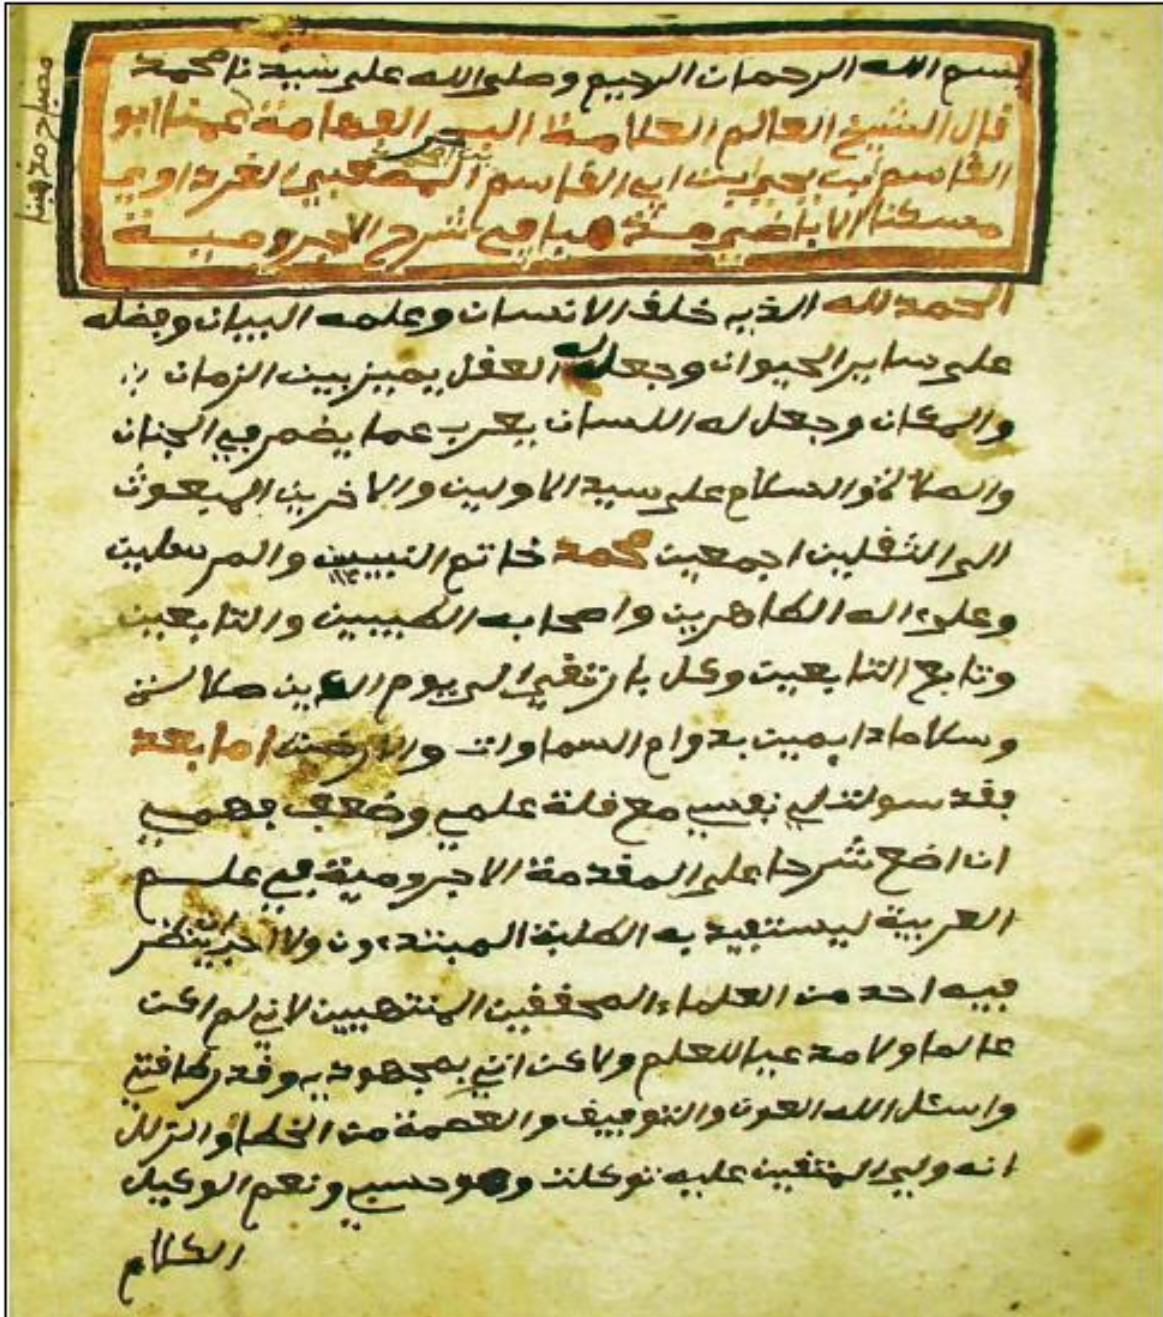 بسم الله الرحمان الرحيم وصلى الله على سيدنا محمد
قال الشيخ العالم العلامة البحر الفهامة عمنا ابو
القاسم ابن يحيى ابن ابي القاسم المصعبي الغرداوي
مسكنا الاباضي مذهبا في شرح الاجرومية
الحمد لله الذي خلق الانسان وعلمه البيان وفضله
على ساير الحيوان وجعل له العقل يميز بين الزمان
والمكان وجعل له اللسان يعرب عما يضمر في الجنان
والصلاة والسلام على سيد الاولين والاخرين المبعوث
الى الثقلين اجمعين محمد خاتم النبيين والمرسلين
وعلى اله الطاهرين واصحابه الطيبين والتابعين
وتابع التابعين وكل بار تقي الى يوم الدين صلاة
وسلاما دايمين بدوام السماوات والارضين اما بعد
فقد سولت لي نفسي مع قلة علمي وضعف فهمي
ان اضع شرحا على المقدمة الاجرومية في علم
العربية ليستفيد به الطلبة المبتدءون ولا ان ينظر
فيه احد من العلماء المحققين المنتهيين لاني لم اكن
عالما ولا مدعيا للعلم ولاكن اتي بمجهودي وقدر طاقتي
واسئل الله العون والتوفيق والعصمة من الخطأ والزلل
انه ولي المتقين عليه توكلت وهو حسبي ونعم الوكيل
الكلام